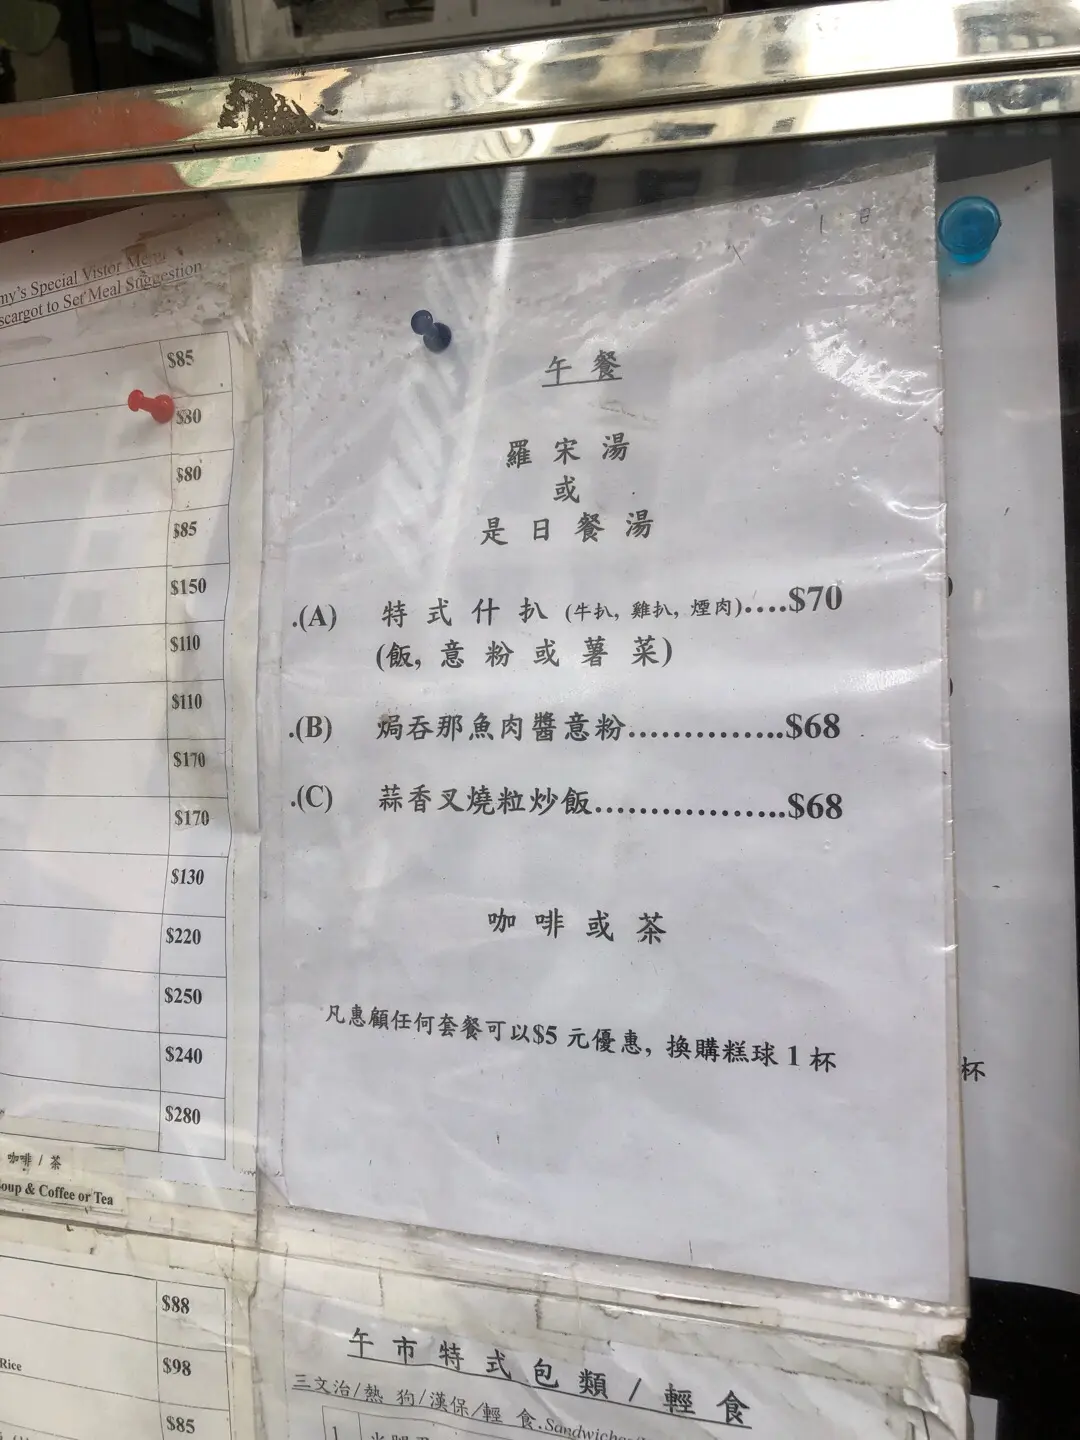 my's Special Vistor Menu
scargot to Set Meal Suggestion
$85
$80
$80
$85
$150
$110
$110
$170
$170
$130
$220
$250
$240
$280
咖啡 / 茶
oup & Coffee or Tea
$88
Rice
$98
$85
日
午餐
羅宋湯
或
是日餐湯
.(A) 特式什扒 (牛扒, 雞扒, 煙肉)....$70
(飯, 意粉或薯菜)
.(B) 焗吞那魚肉醬意粉...............$68
.(C) 蒜香叉燒粒炒飯..................$68
咖啡或茶
凡惠顧任何套餐可以$5 元優惠, 換購糕球 1 杯
杯
午市特式包類 / 輕食
三文治/熱狗/漢保/輕食.Sandwiches
1